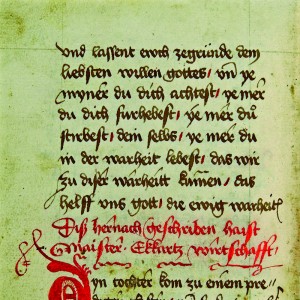 vnd lassent eüch zegründe dem
liebsten willen gottes / vn̄ ye
mÿner du dich achtest / ye mer
du dich fürhebest / ye mer du
stirbest / dein selbs / ye mer du
in der warheit lebest / das wir
zu diser warheitt kumen / das
helff vns gott / die ewig warheit
Diß hernach geschriben haist
maister Eckartz wirtschafft /
Ayn tochter kom zu einem pre=